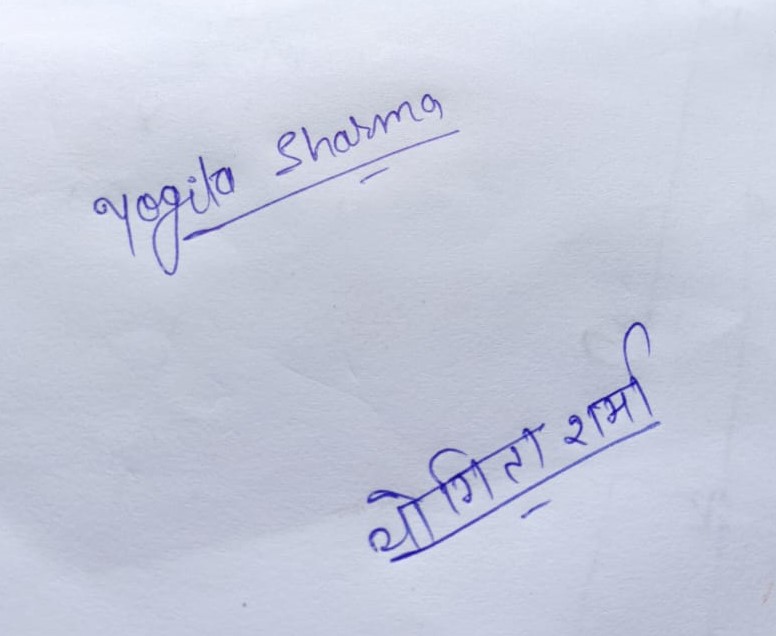 Yogita Sharma
योगिता शर्मा